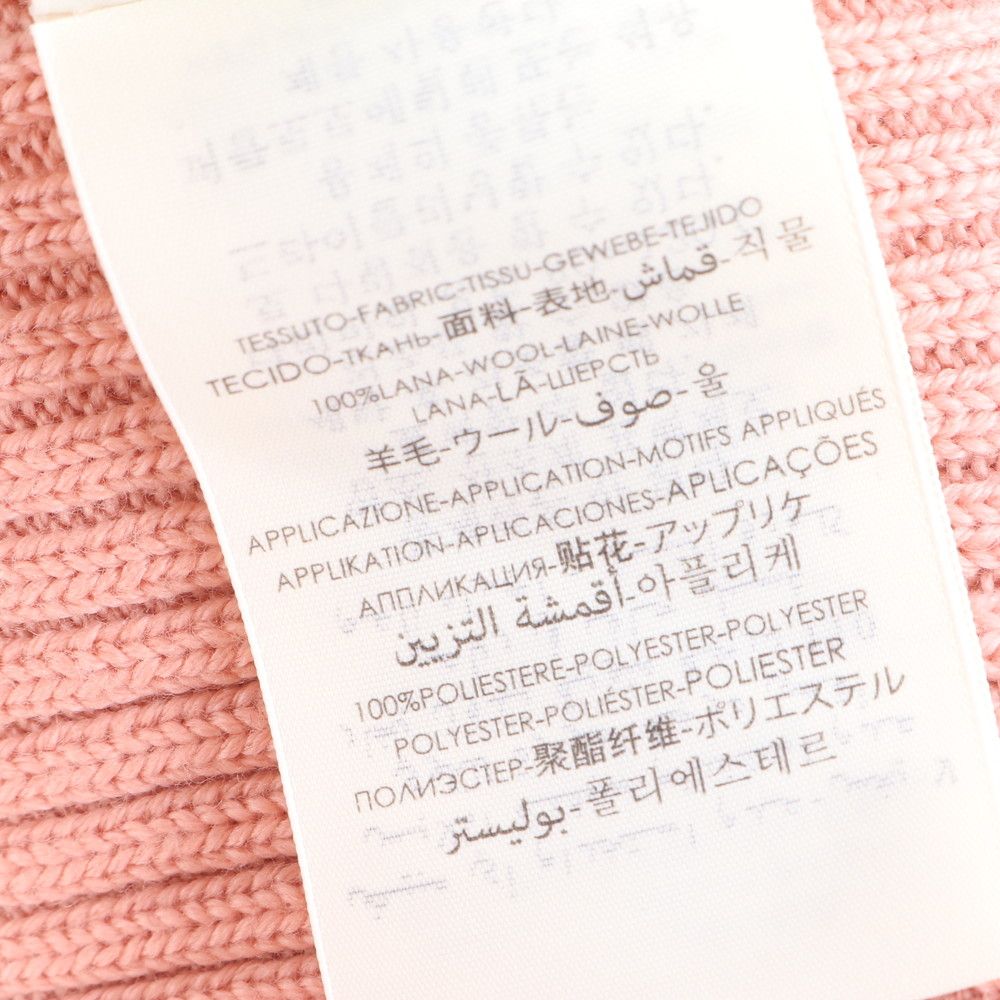 TESSUTO-FABRIC-TISSU-GEWEBE-TEJIDO
TECIDO-ТКАНЬ-面料-表地-قماش-직물
100%LANA-WOOL-LAINE-WOLLE
LANA-LÃ-ШЕРСТЬ
羊毛-ウール-صوف-울
APPLICAZIONE-APPLICATION-MOTIFS APPLIQUÉS
APPLIKATION-APLICACIONES-APLICAÇÕES
АППЛИКАЦИЯ-贴花-アップリケ
أقمشة التزيين-아플리케
100%POLIESTERE-POLYESTER-POLYESTER
POLYESTER-POLIÉSTER-POLIESTER
ПОЛИЭСТЕР-聚酯纤维-ポリエステル
بوليستر-폴리에스테르